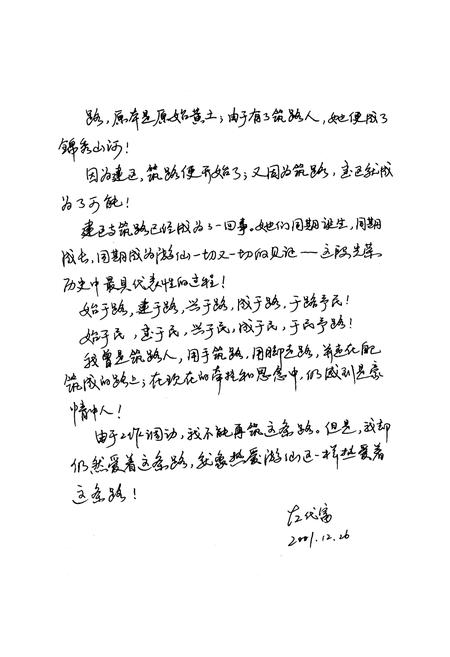 路，原本是原始黄土；由于有了筑路人，她便成了
锦秀山河！
因为建区，筑路便开始了；又因为筑路，建区就成
为了可能！
建区与筑路已经成为了一回事。她们同期诞生，同期
成长，同期成为游仙一切又一切的见证——这段光荣
历史中最具代表性的过程！
始于路，建于路，兴于路，成于路，于路予民！
始于民，建于民，兴于民，成于民，于民予路！
我曾是筑路人，用手筑路，用脚走路，并走在自己
筑成的路上；在现在的牵挂和思念中，仍感到是
情中人！
由于工作调动，我不能再筑这条路。但是，我却
仍然爱着这条路，就象热爱游仙区一样热爱着
这条路！
左代富
2001.12.26